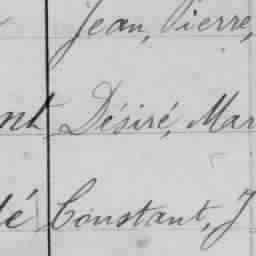 Jean, Pierre,
nt Désiré, Mar
é Constant, J